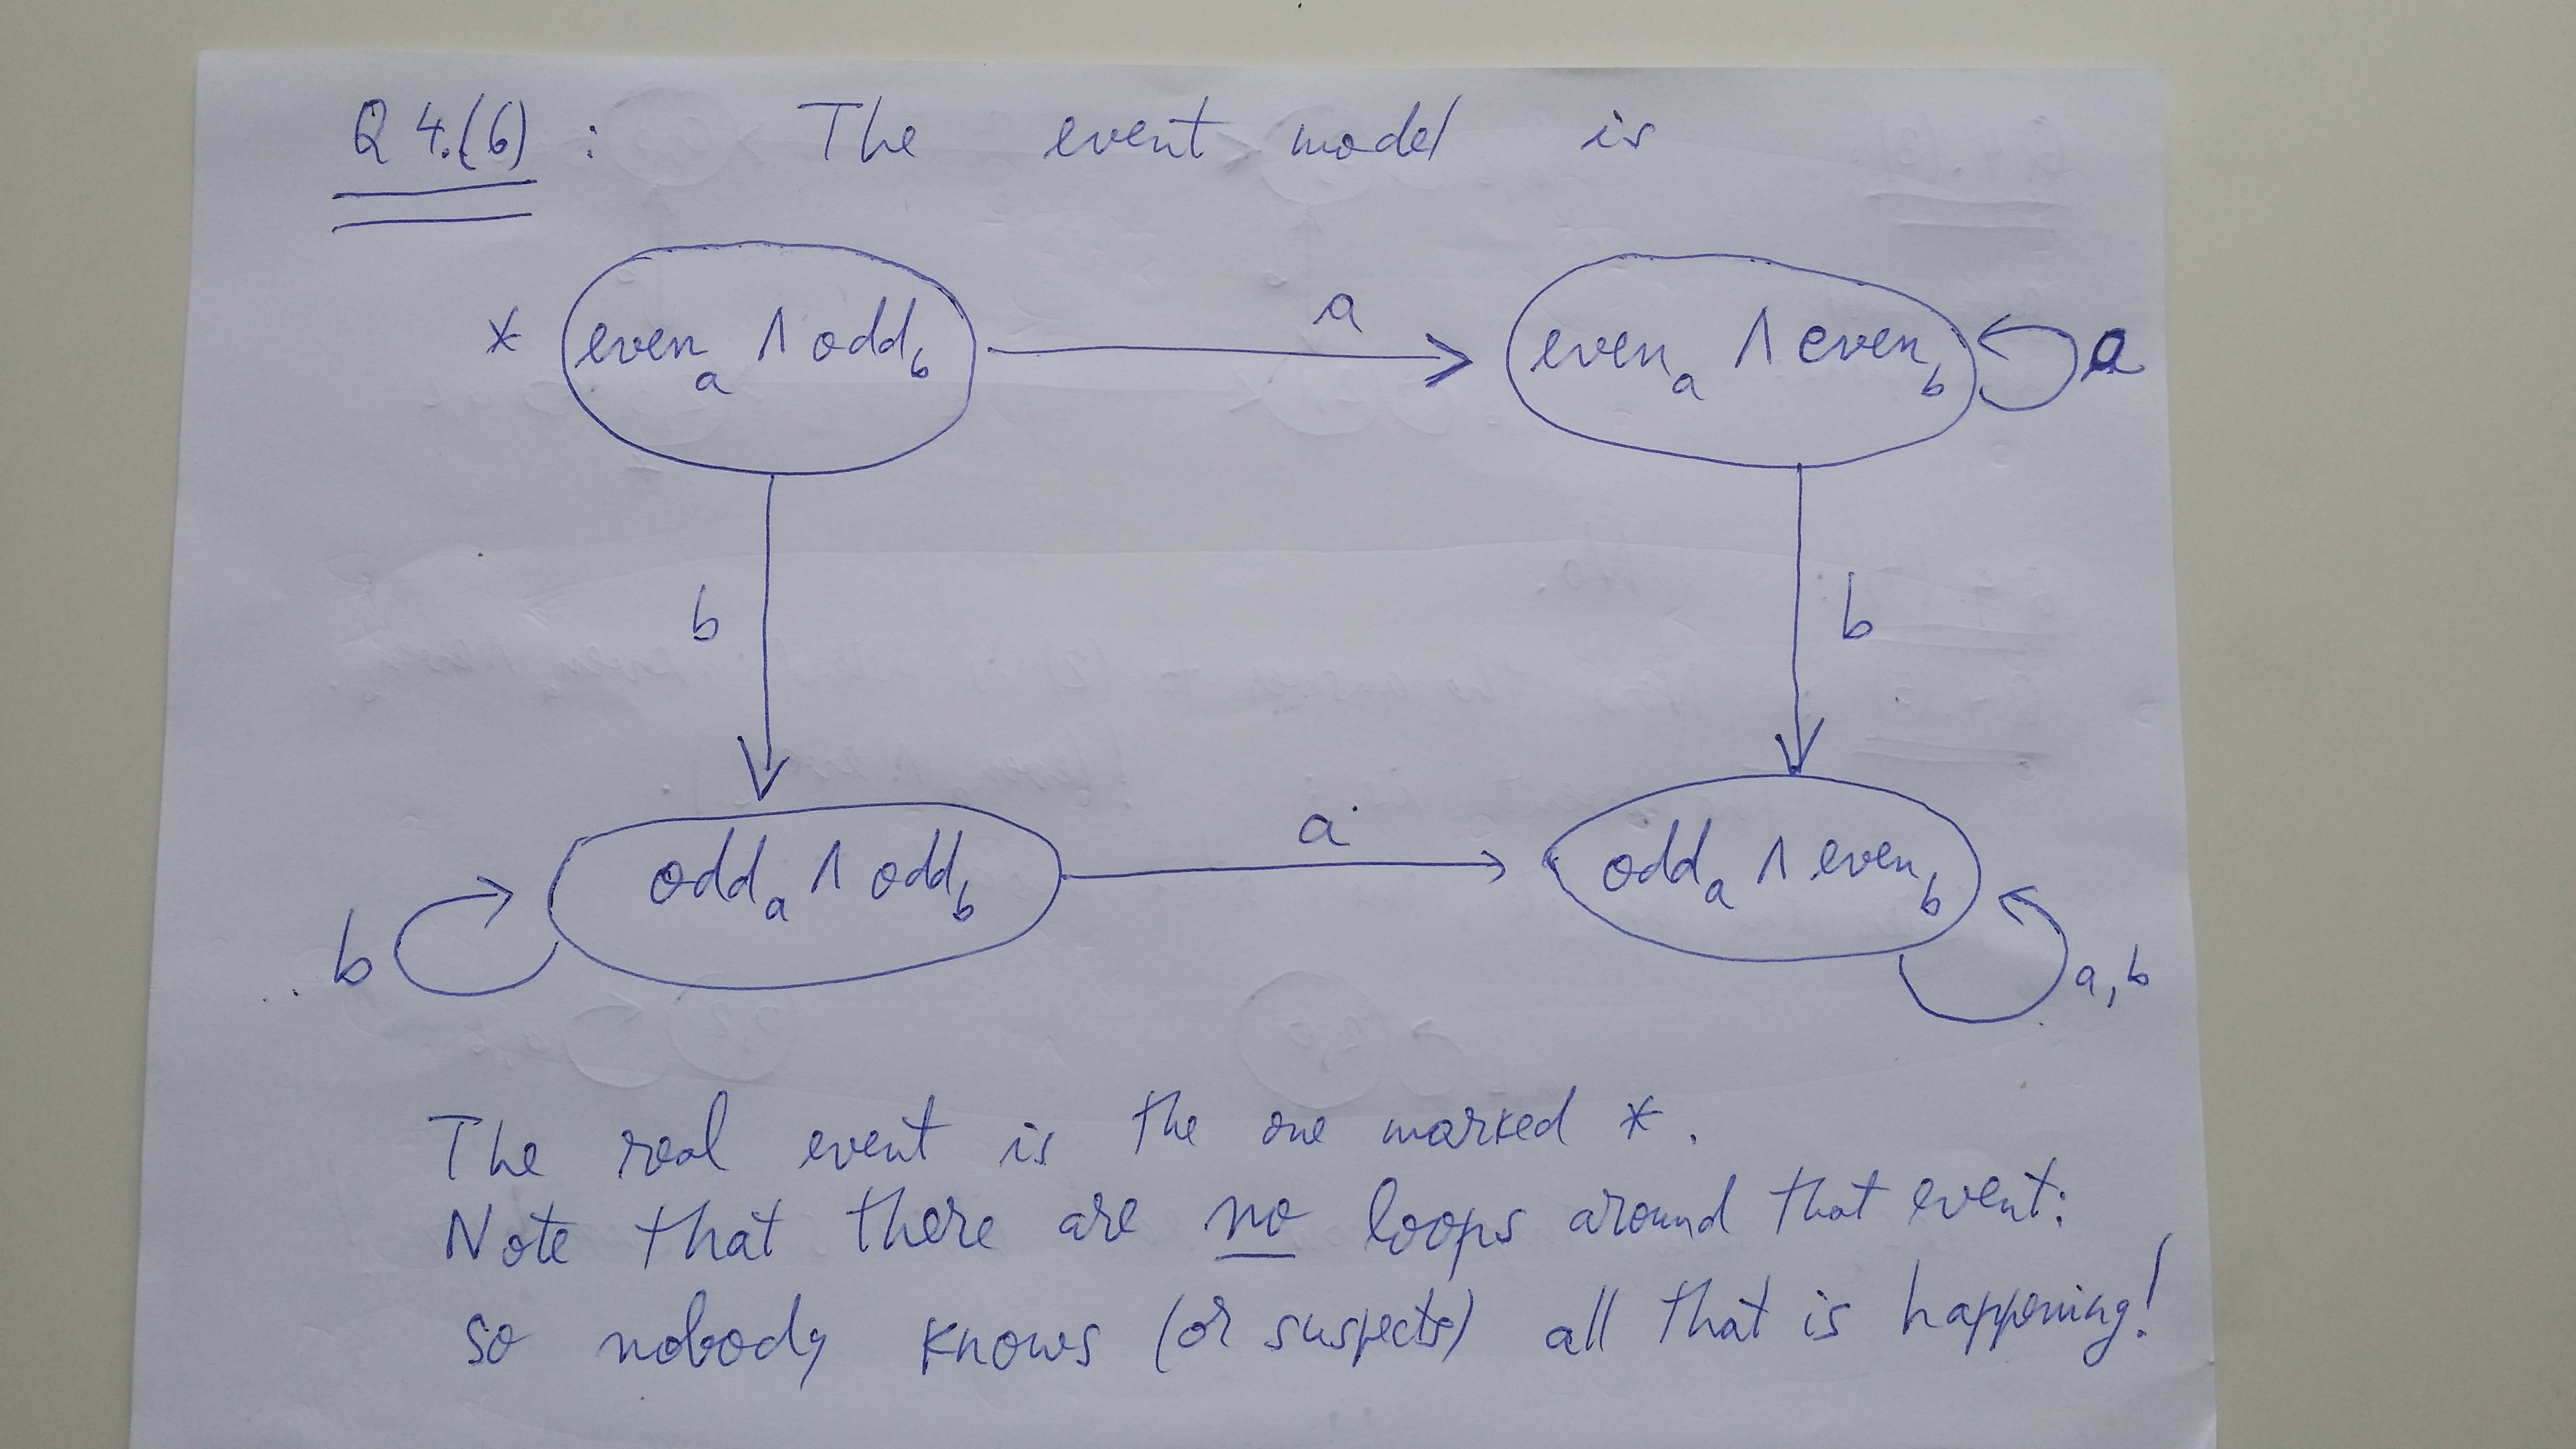 Q 4.(6) : The event model is
* even_a ∧ odd_b
a
even_a ∧ even_b
a
b
b
odd_a ∧ odd_b
a
odd_a ∧ even_b
b
a, b
The real event is the one marked *.
Note that there are no loops around that event:
so nobody knows (or suspects) all that is happening!